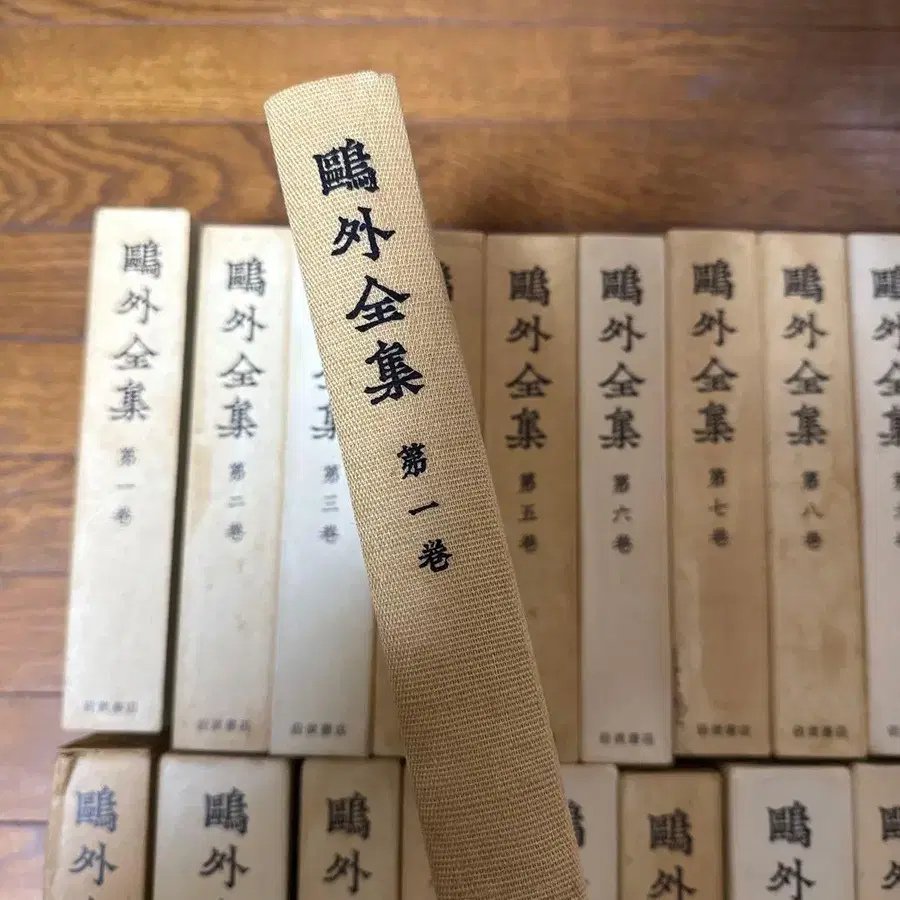 鷗外全集 第一巻
鷗外全集 第一巻 岩波書店
鷗外全集 第二巻 岩波書店
集 第三巻 岩波書店
鷗外全集 第五巻
鷗外全集 第六巻 岩波書店
鷗外全集 第七巻 岩波書店
鷗外全集 第八巻 岩波書店
鷗外全集
鷗外
鷗外
鷗外
鷗外
鷗外